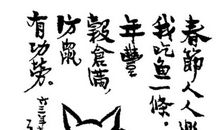 春節人人樂
我吃魚一條。
年豐
穀倉滿，
防鼠
有功勞。